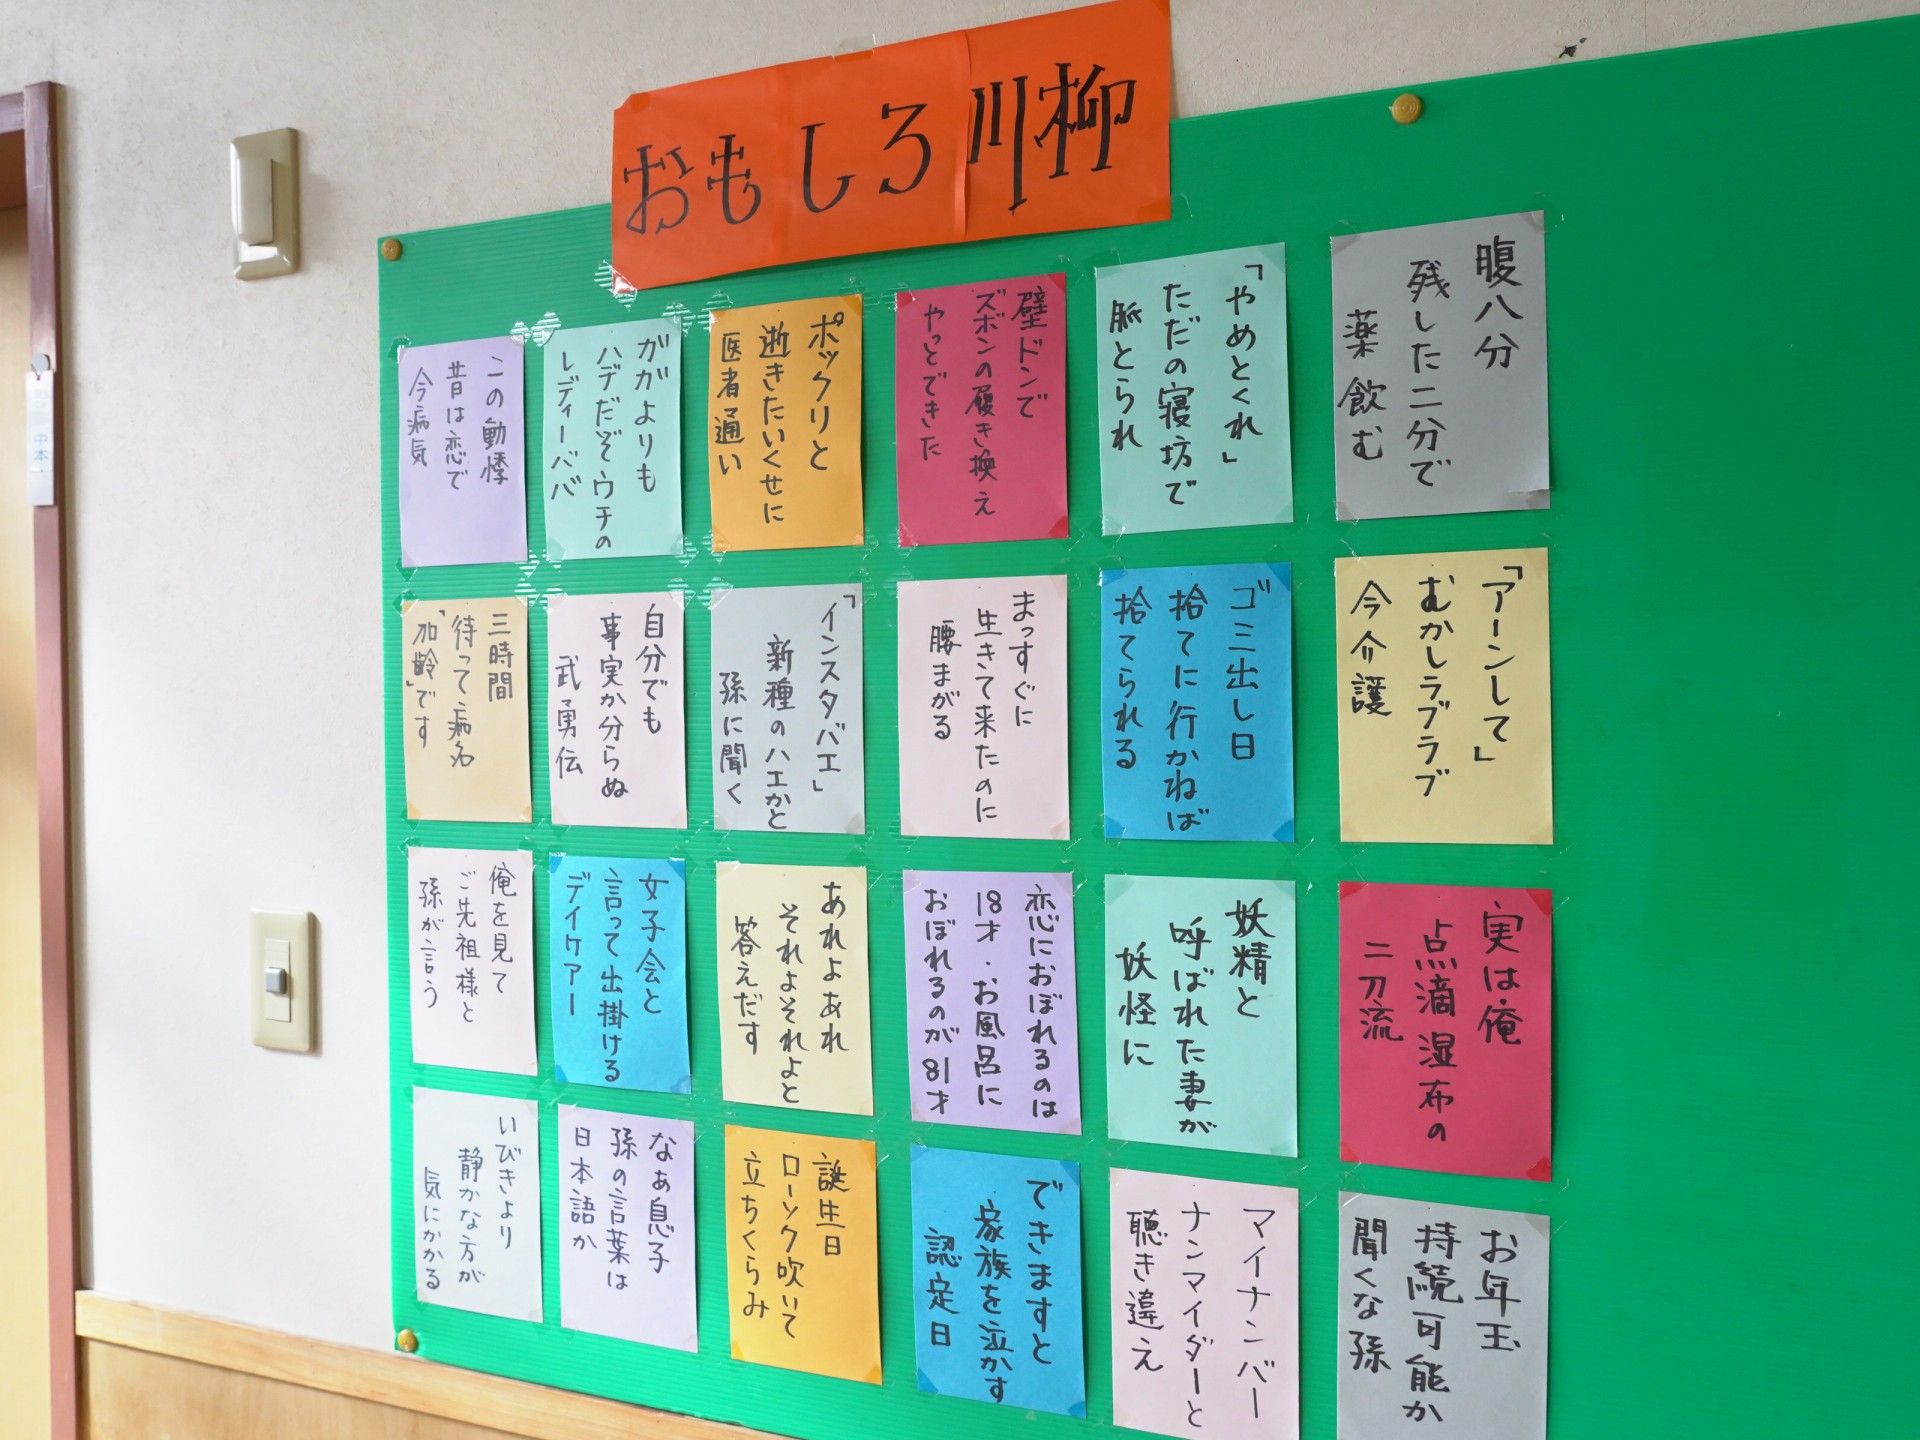 おもしろ川柳
腹八分
残した二分で
薬飲む
「やめとくれ」
ただの寝坊で
脈とられ
壁ドンで
ズボンの履き換え
やっとできた
ポックリと
逝きたいくせに
医者通い
ガガよりも
ハデだぞウチの
レディーババ
この動悸
昔は恋で
今病気
「アーンして」
むかしラブラブ
今介護
ゴミ出し日
捨てに行かねば
捨てられる
まっすぐに
生きて来たのに
腰まがる
「インスタバエ」
新種のハエかと
孫に聞く
自分でも
事実か分らぬ
武勇伝
三時間
待って病名
「加齢」です
実は俺
点滴湿布の
二刀流
妖精と
呼ばれた妻が
妖怪に
恋におぼれるのは
18才・お風呂に
おぼれるのが81才
あれよあれ
それよそれよと
答えだす
女子会と
言って出掛ける
デイケアー
俺を見て
ご先祖様と
孫が言う
お年玉
持続可能か
聞くな孫
マイナンバー
ナンマイダーと
聴き違え
できますと
家族を泣かす
認定日
誕生日
ローソク吹いて
立ちくらみ
なぁ息子
孫の言葉は
日本語か
いびきより
静かな方が
気にかかる